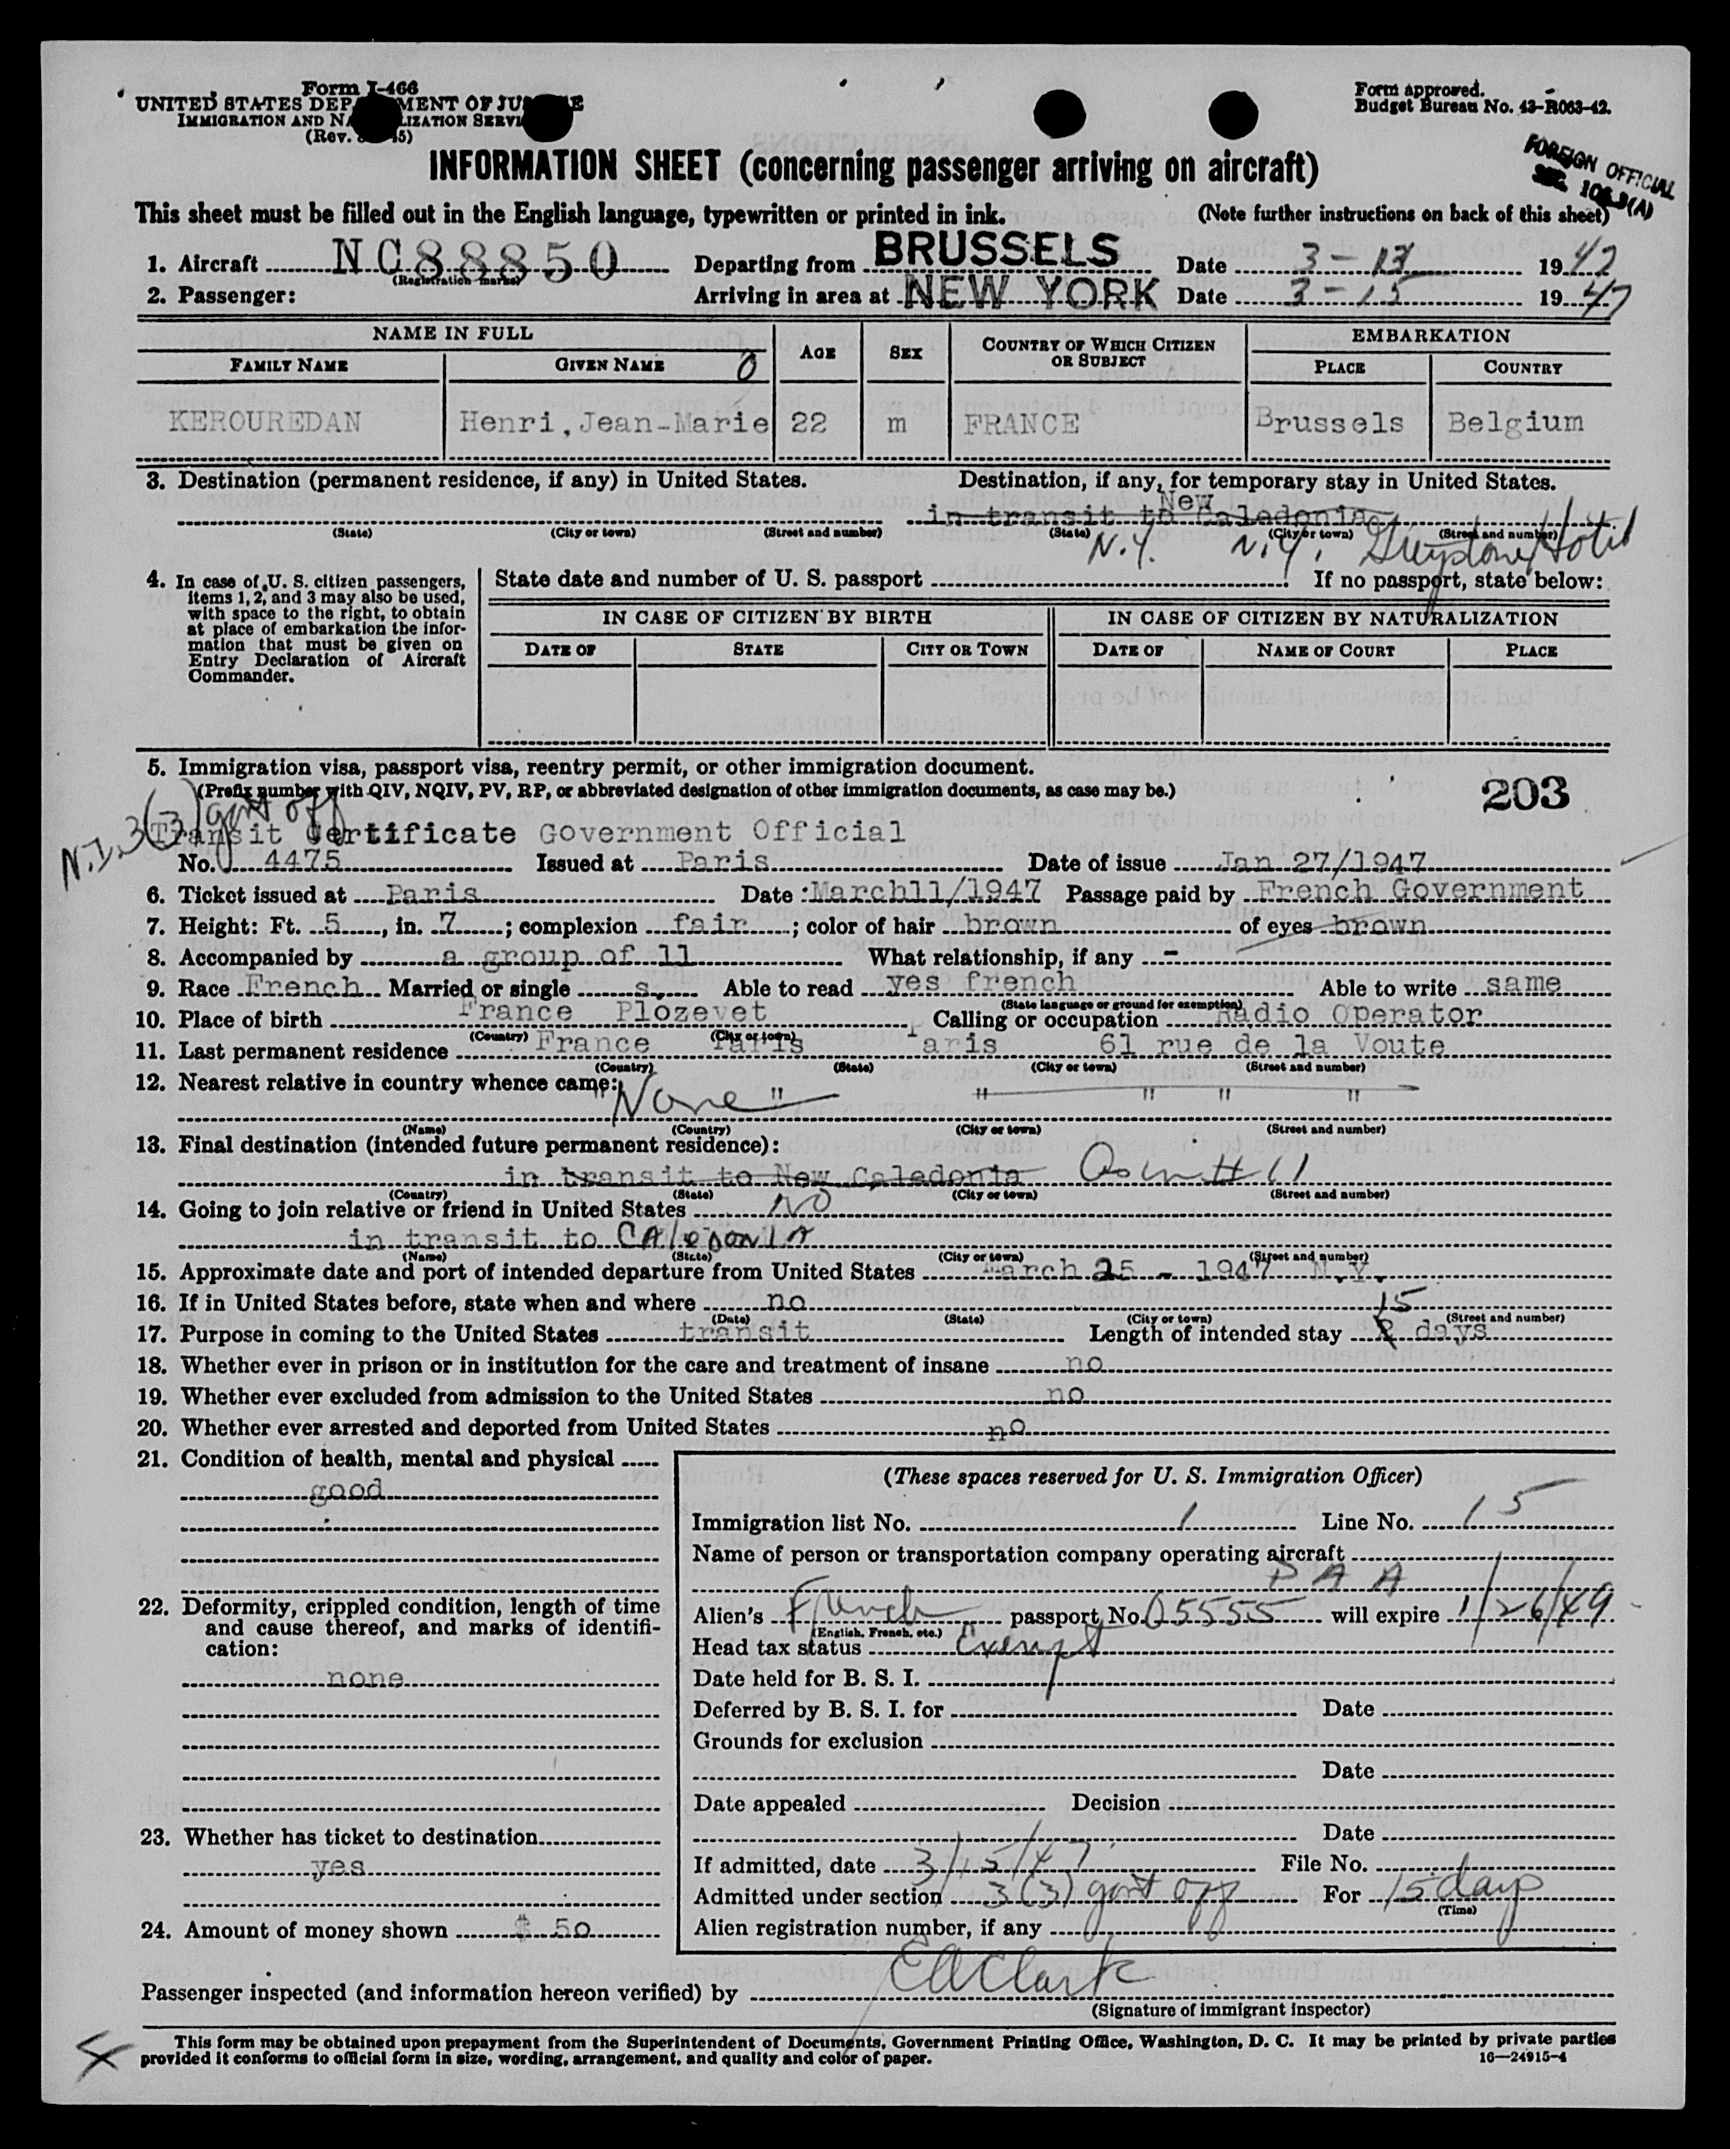 Form I-466
UNITED STATES DEPARTMENT OF JUSTICE
IMMIGRATION AND NATURALIZATION SERVICE
(Rev. 45)
Form approved.
Budget Bureau No. 43-R063-42.
FOREIGN OFFICIAL
SEC. 10 (A)
INFORMATION SHEET (concerning passenger arriving on aircraft)
This sheet must be filled out in the English language, typewritten or printed in ink. (Note further instructions on back of this sheet)
1. Aircraft NC88850 (Registration marks) Departing from BRUSSELS Date 3-13 1947
2. Passenger: Arriving in area at NEW YORK Date 3-15 1947
NAME IN FULL AGE SEX COUNTRY OF WHICH CITIZEN OR SUBJECT EMBARKATION
FAMILY NAME GIVEN NAME PLACE COUNTRY
KEROUREDAN Henri, Jean-Marie 22 m FRANCE Brussels Belgium
3. Destination (permanent residence, if any) in United States. Destination, if any, for temporary stay in United States.
in transit to New Caledonia
(State) (City or town) (Street and number) (State) (City or town) (Street and number)
N.Y. N.Y. Greystone Hotel
4. In case of U. S. citizen passengers, items 1, 2, and 3 may also be used, with space to the right, to obtain at place of embarkation the information that must be given on Entry Declaration of Aircraft Commander.
State date and number of U. S. passport If no passport, state below:
IN CASE OF CITIZEN BY BIRTH IN CASE OF CITIZEN BY NATURALIZATION
DATE OF STATE CITY OR TOWN DATE OF NAME OF COURT PLACE
5. Immigration visa, passport visa, reentry permit, or other immigration document.
(Prefix number with QIV, NQIV, PV, RP, or abbreviated designation of other immigration documents, as case may be.) 203
N.I. 3(3) govt off
Transit Certificate Government Official
No. 4475 Issued at Paris Date of issue Jan 27/1947
6. Ticket issued at Paris Date March11/1947 Passage paid by French Government
7. Height: Ft. 5, in. 7; complexion fair; color of hair brown of eyes brown
8. Accompanied by a group of 11 What relationship, if any -
9. Race French Married or single s. Able to read yes french Able to write same
(State language or ground for exemption)
10. Place of birth France Plozevet Calling or occupation Radio Operator
(Country) (City or town)
11. Last permanent residence France Paris Paris 61 rue de la Voute
(Country) (State) (City or town) (Street and number)
12. Nearest relative in country whence came:
" None " " " " "
(Name) (Country) (City or town) (Street and number)
13. Final destination (intended future permanent residence):
in transit to New Caledonia As in # 11
(Country) (State) (City or town) (Street and number)
14. Going to join relative or friend in United States NO
in transit to CAleDonIA
(Name) (State) (City or town) (Street and number)
15. Approximate date and port of intended departure from United States March 25 - 1947 N.Y.
16. If in United States before, state when and where no
(Date) (State) (City or town) (Street and number)
17. Purpose in coming to the United States transit Length of intended stay 15 days
18. Whether ever in prison or in institution for the care and treatment of insane no
19. Whether ever excluded from admission to the United States no
20. Whether ever arrested and deported from United States no
21. Condition of health, mental and physical
good
22. Deformity, crippled condition, length of time and cause thereof, and marks of identification:
none
23. Whether has ticket to destination
yes
24. Amount of money shown $ 50
(These spaces reserved for U. S. Immigration Officer)
Immigration list No. 1 Line No. 15
Name of person or transportation company operating aircraft
P A A
Alien's French passport No. 05555 will expire 1/26/49
(English, French, etc.)
Head tax status Exempt
Date held for B. S. I.
Deferred by B. S. I. for Date
Grounds for exclusion
Date
Date appealed Decision
Date
If admitted, date 3/15/47 File No.
Admitted under section 3(3) govt off For 15 days
(Time)
Alien registration number, if any
Passenger inspected (and information hereon verified) by EA Clark
(Signature of immigrant inspector)
This form may be obtained upon prepayment from the Superintendent of Documents, Government Printing Office, Washington, D. C. It may be printed by private parties
provided it conforms to official form in size, wording, arrangement, and quality and color of paper.
16—24915-4